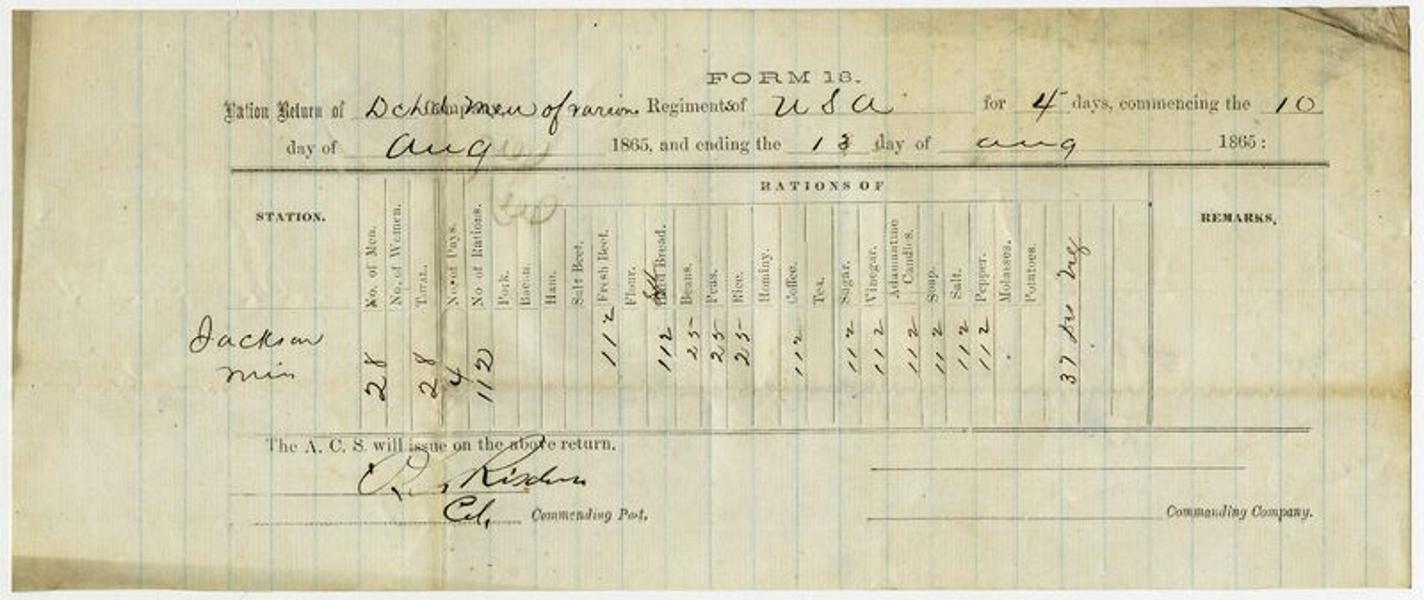 FORM 13.
Ration Return of Dchd men of various Regiments of U S A for 4 days, commencing the 10
day of Aug 1865, and ending the 13 day of aug 1865:
RATIONS OF
STATION. No. of Men. No. of Women. Total. No. of Days. No of Rations. Pork. Bacon. Ham. Salt Beef. Fresh Beef. Flour. Hard Bread. Beans. Peas. Rice. Hominy. Coffee. Tea. Sugar. Vinegar. Adamantine Candles. Soap. Salt. Pepper. Molasses. Potatoes. REMARKS.
Jackson 28 28 4 112 112 112 25 25 25 112 112 112 112 112 112 112 37
Miss
The A. C. S. will issue on the above return.
Risdon
Col, Commending Post. Commanding Company.